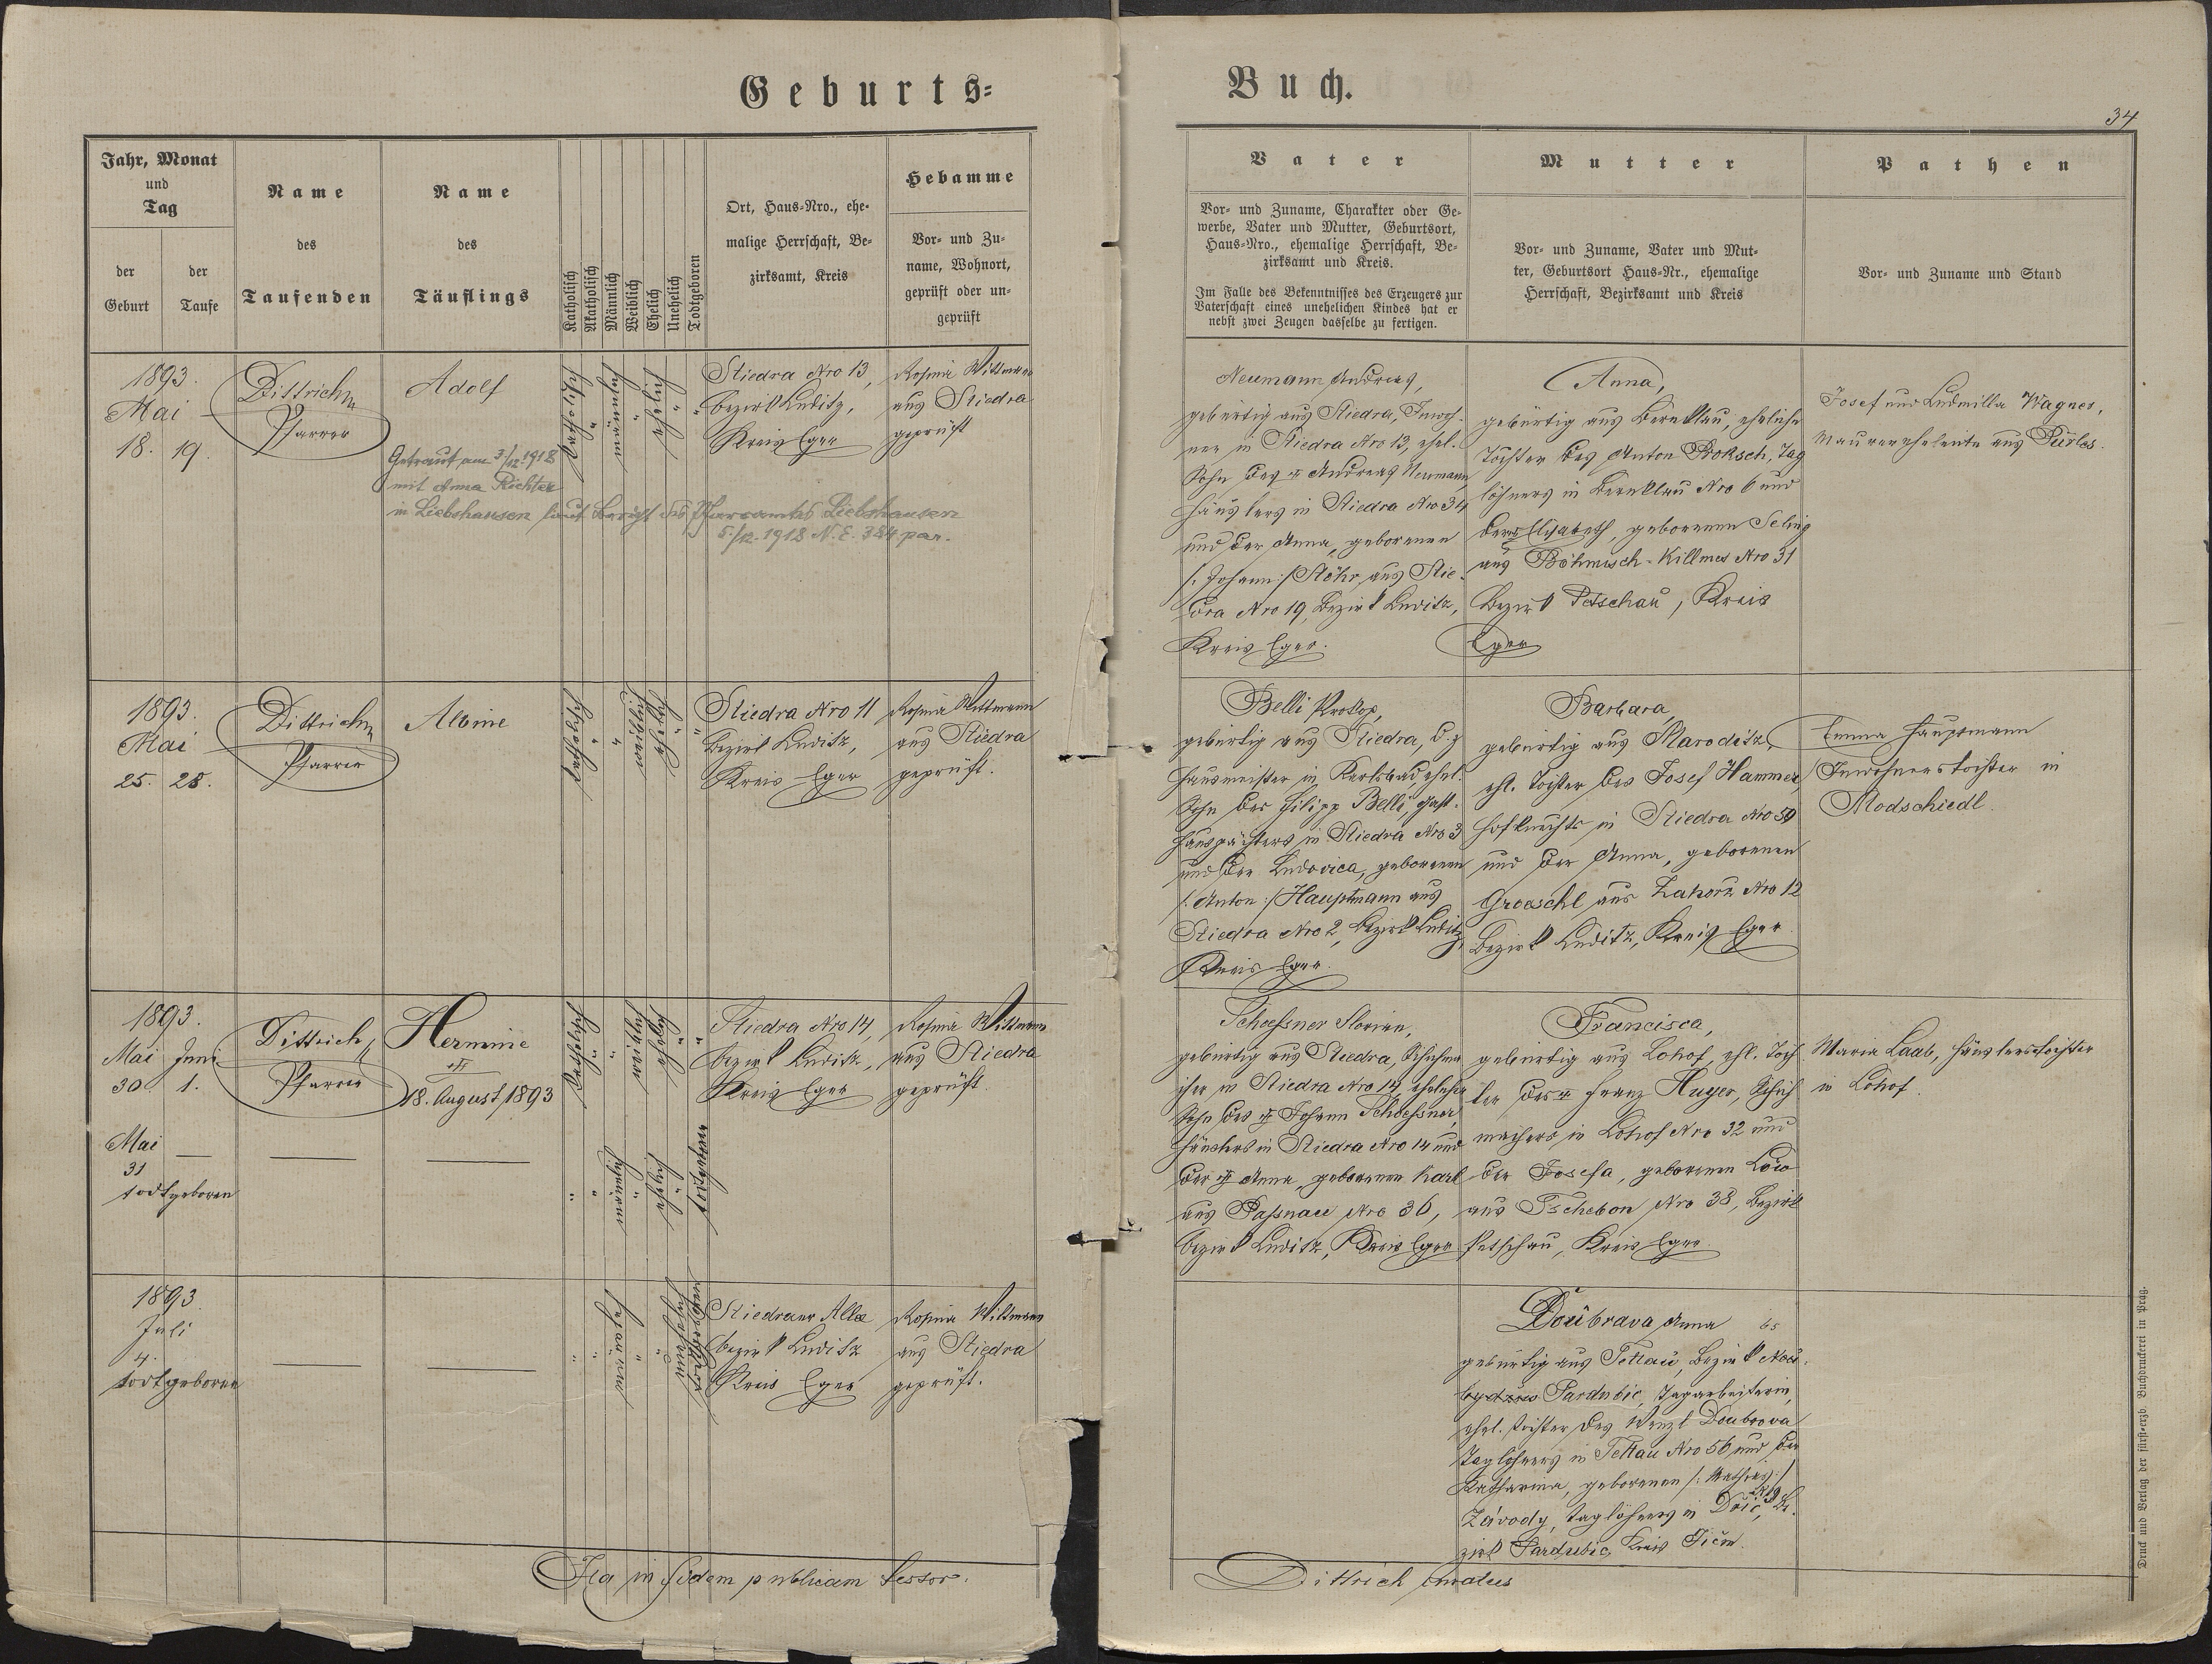 Geburts=
Buch.
34
Jahr, Monat
und
Tag
der
Geburt
der
Taufe
Name
des
Taufenden
Name
des
Täuflings
Katholisch
Akatholisch
Männlich
Weiblich
Ehelich
Unehelich
Todtgeboren
Ort, Haus=Nro., ehe=
malige Herrschaft, Be=
zirksamt, Kreis
Hebamme
Vor= und Zu=
name, Wohnort,
geprüft oder un=
geprüft
Vater
Vor= und Zuname, Charakter oder Ge=
werbe, Vater und Mutter, Geburtsort,
Haus=Nro., ehemalige Herrschaft, Be=
zirksamt und Kreis.
Im Falle des Bekenntnisses des Erzeugers zur
Vaterschaft eines unehelichen Kindes hat er
nebst zwei Zeugen dasselbe zu fertigen.
Mutter
Vor= und Zuname, Vater und Mut=
ter, Geburtsort Haus=Nr., ehemalige
Herrschaft, Bezirksamt und Kreis
Pathen
Vor= und Zuname und Stand
1893.
Mai
18. 19.
Dittrich
Pfarrer
Adolf
Getraut am 3/12. 1918
mit Anna Richter
in Liebshausen laut Bericht des Pfarramtes Liebshausen
5./12. 1918 N.E. 384 par.
katholisch
"
männlich
"
ehelich
"
"
Stiedra Nro 13,
Bezirk Luditz,
Kreis Eger
Rosina Wittmann
aus Stiedra
geprüft
Neumann Andreas,
gebürtig aus Stiedra, Inwoh-
ner in Stiedra Nro 13, ehel.
Sohn des † Andreas Neumann,
Häuslers in Stiedra Nro 34
und der Anna, geborenen
/: Johann :/ Stöhr, aus Stie-
dra Nro 19, Bezirk Luditz,
Kreis Eger.
Anna,
gebürtig aus Bernklau, eheliche
Tochter des Anton Proksch, Tag
löhners in Bernklau Nro 6 und
der Elisabeth, geborenen Seling
aus Böhmisch-Killmes Nro 31
Bezirk Petschau, Kreis
Eger
Josef und Ludmilla Wagner,
Maurereheleute aus Pürles.
1893.
Mai
25. 28.
Dittrich
Pfarrer
Albine
katholisch
"
weiblich
ehelich
"
Stiedra Nro 11
Bezirk Luditz,
Kreis Eger
Rosina Wittmann
aus Stiedra
geprüft.
Belli Prokop,
gebürtig aus Stiedra, d. z.
Hausmeister in Karlsbad, ehel.
Sohn des Filipp Belli, Gast-
hauspächters in Stiedra Nro 3
und der Ludovica, geborenen
/: Anton :/ Hauptmann aus
Stiedra Nro 2, Bezirk Luditz,
Kreis Eger.
Barbara,
gebürtig aus Maroditz,
ehl. Tochter des Josef Hammer,
Hofknechts in Stiedra Nro 59
und der Anna, geborenen
Groeschl aus Zahorz Nro 12
Bezirk Luditz, Kreis Eger.
Emma Hauptmann
Inwohnerstochter in
Modschiedl.
1893.
Mai Juni
30. 1.
Dittrich
Pfarrer
Hermine
†
18. August 1893
katholisch
"
weiblich
ehelich
"
"
Stiedra Nro 14,
Bezirk Luditz,
Kreis Eger
Rosina Wittmann
aus Stiedra
geprüft.
Schoessner Florian,
gebürtig aus Stiedra, Schuhma
cher in Stiedra Nro 14, ehelicher
Sohn des † Johann Schoessner,
Häuslers in Stiedra Nro 14 und
der † Anna, geborenen Karl
aus Passnau Nro 36,
Bezirk Luditz, Kreis Eger
Francisca,
gebürtig aus Lohof, ehl. Toch
ter des † Franz Huyer, Schuh
machers in Lohof Nro 32 und
der Josefa, geborenen Löw
aus Tschebon Nro 38, Bezirk
Petschau, Kreis Eger.
Maria Laab, Häuslerstochter
in Lohof.
Mai
31
todtgeboren
"
"
männlich
"
ehelich
"
todtgeboren
1893.
Juli
4.
todtgeboren
"
"
männlich
"
"
unehelich
todtgeboren
Stiedraer Allee
Bezirk Luditz
Kreis Eger
Rosina Wittmann
aus Stiedra
geprüft.
Doubrava Anna
gebürtig aus Tettau, Bezirk Neu-
Pardubic, Tagarbeiterin,
ehel. Tochter des Wenzl Doubrava
Taglöhners in Tettau Nro 56 und der
Katharina, geborenen /: Mathias :/
Závody, Taglöhners in Be-
zirk Pardubic, Kreis Jičin.
Ita in fidem publicam testor.
Dittrich
Druck und Verlag der fürst=erzb. Buchdruckerei in Prag.